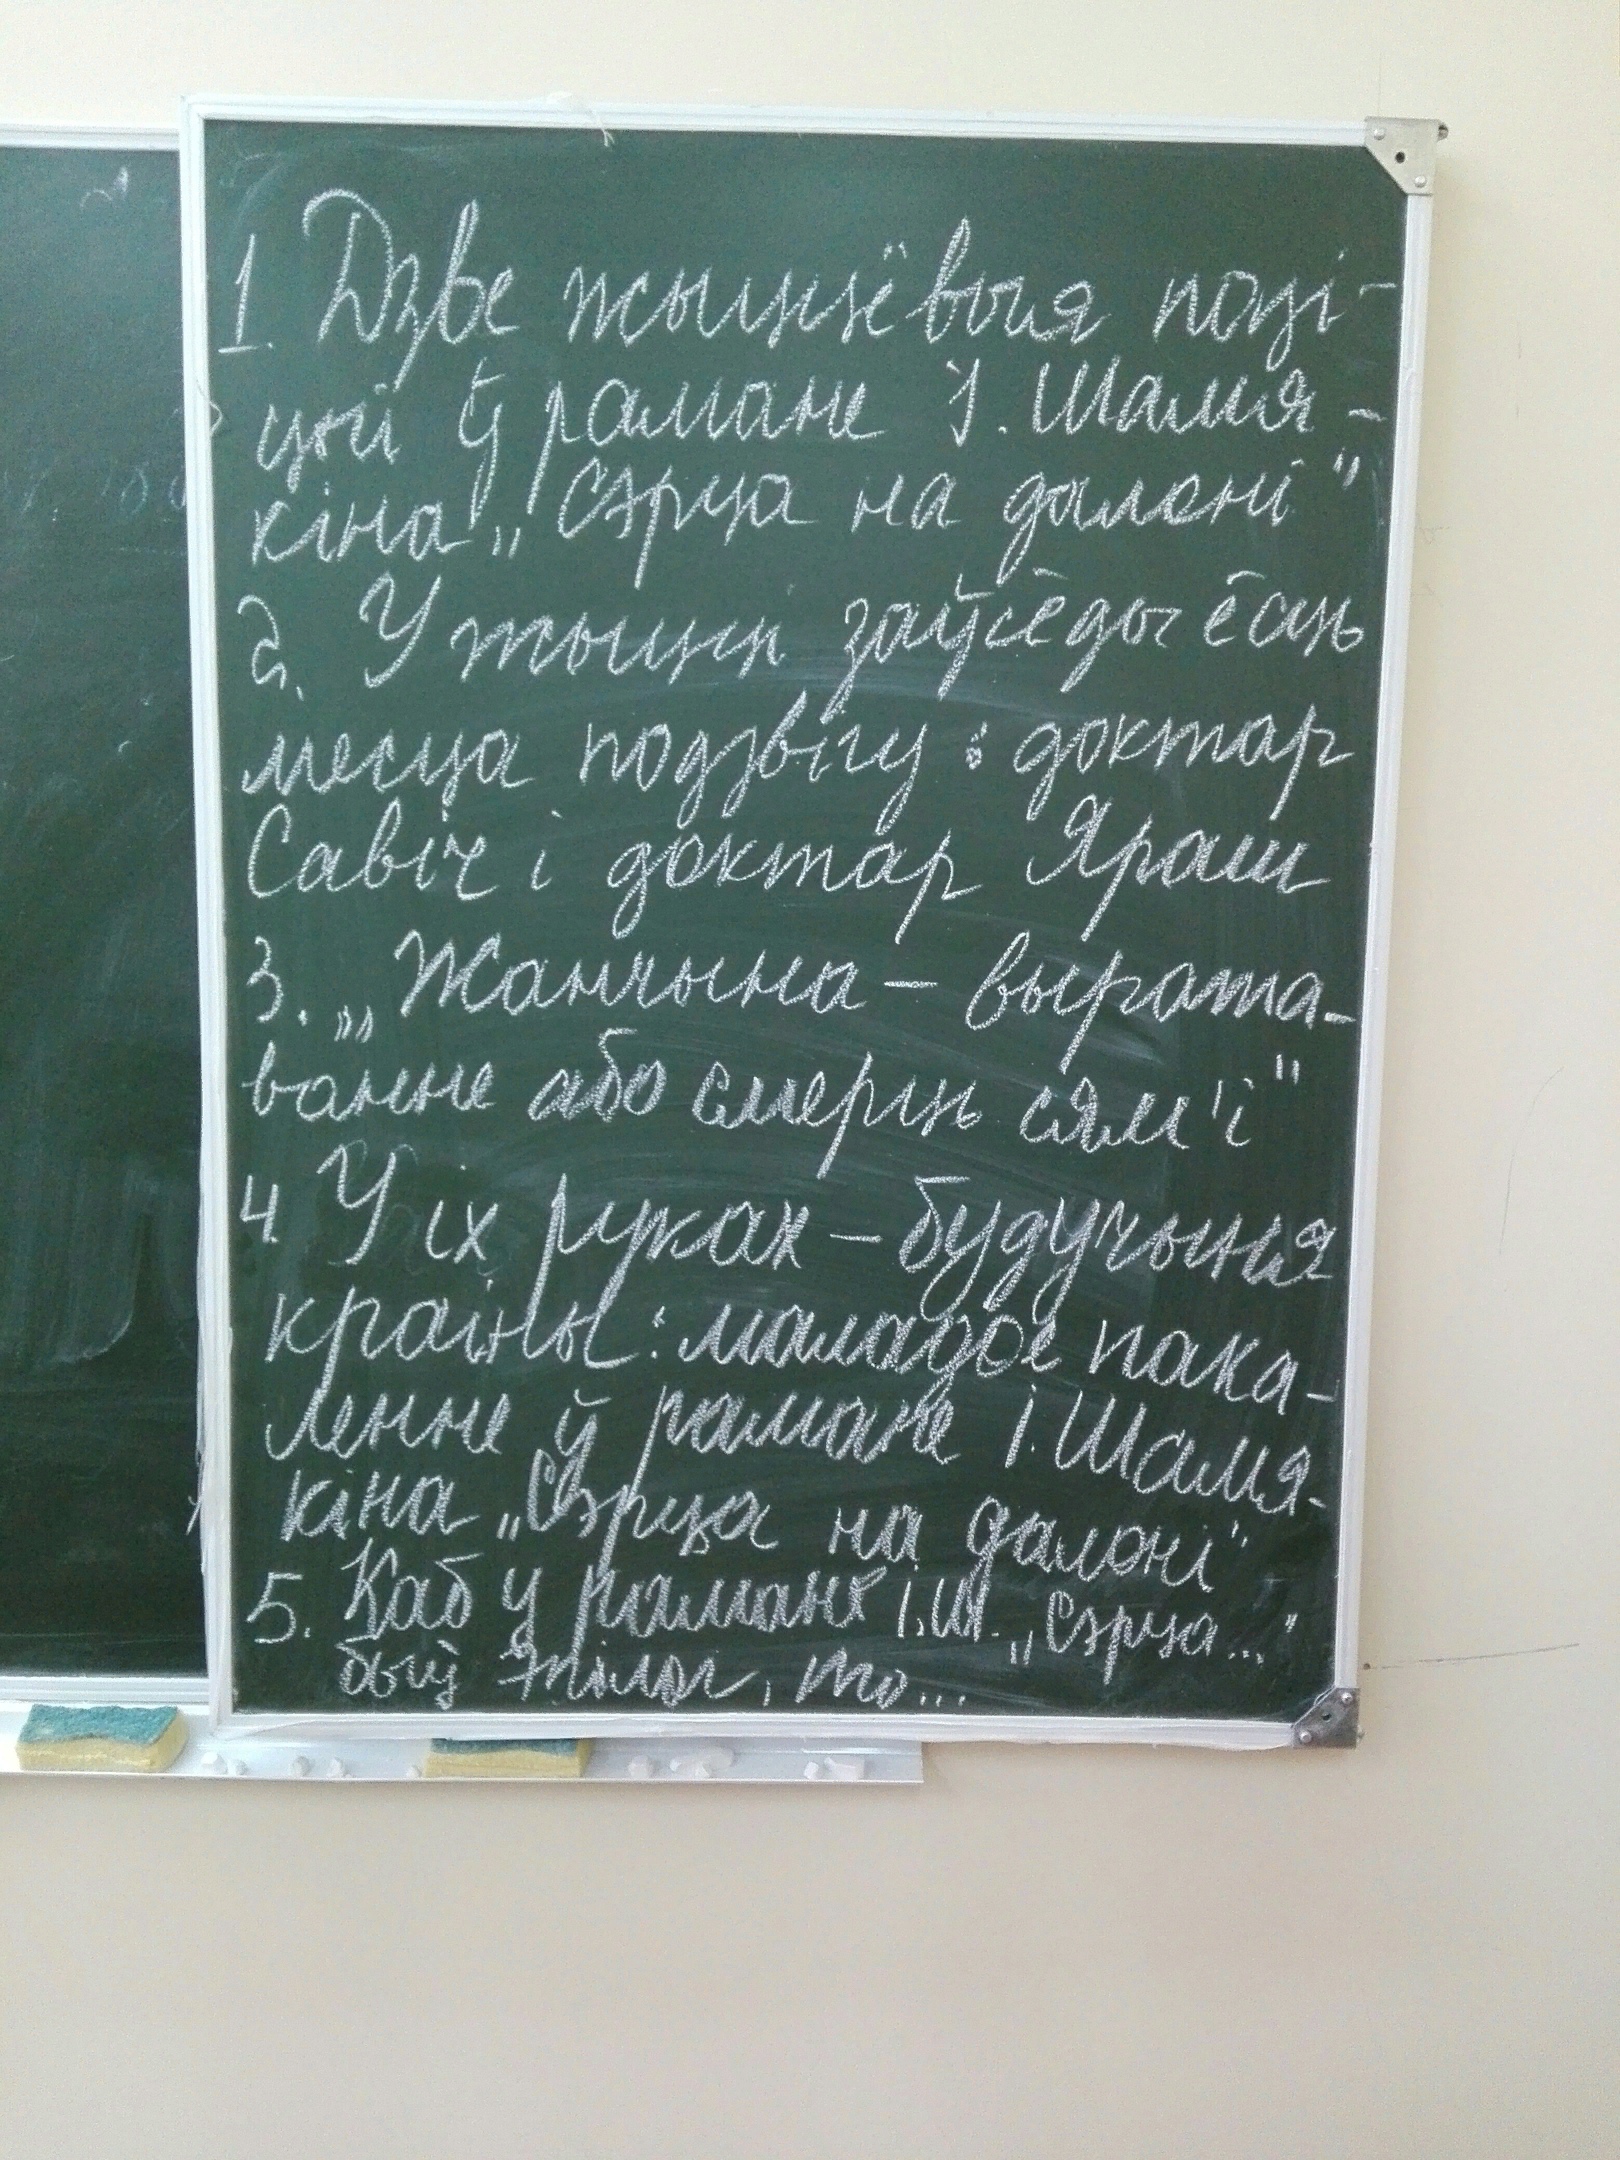 1. Дзве жыццёвыя пазі-
цыі ў рамане І. Шамя-
кіна „Сэрца на далоні"
2. У жыцці заўсёды ёсць
месца подзвігу: доктар
Савіч і доктар Яраш
3. „Жанчына – вырата-
ванне або смерць сям'і"
4. У іх руках – будучыня
краіны: маладое пака-
ленне ў рамане І. Шамя-
кіна „Сэрца на далоні"
5. Каб у рамане І.Ш. „Сэрца..."
быў эпілог, то...